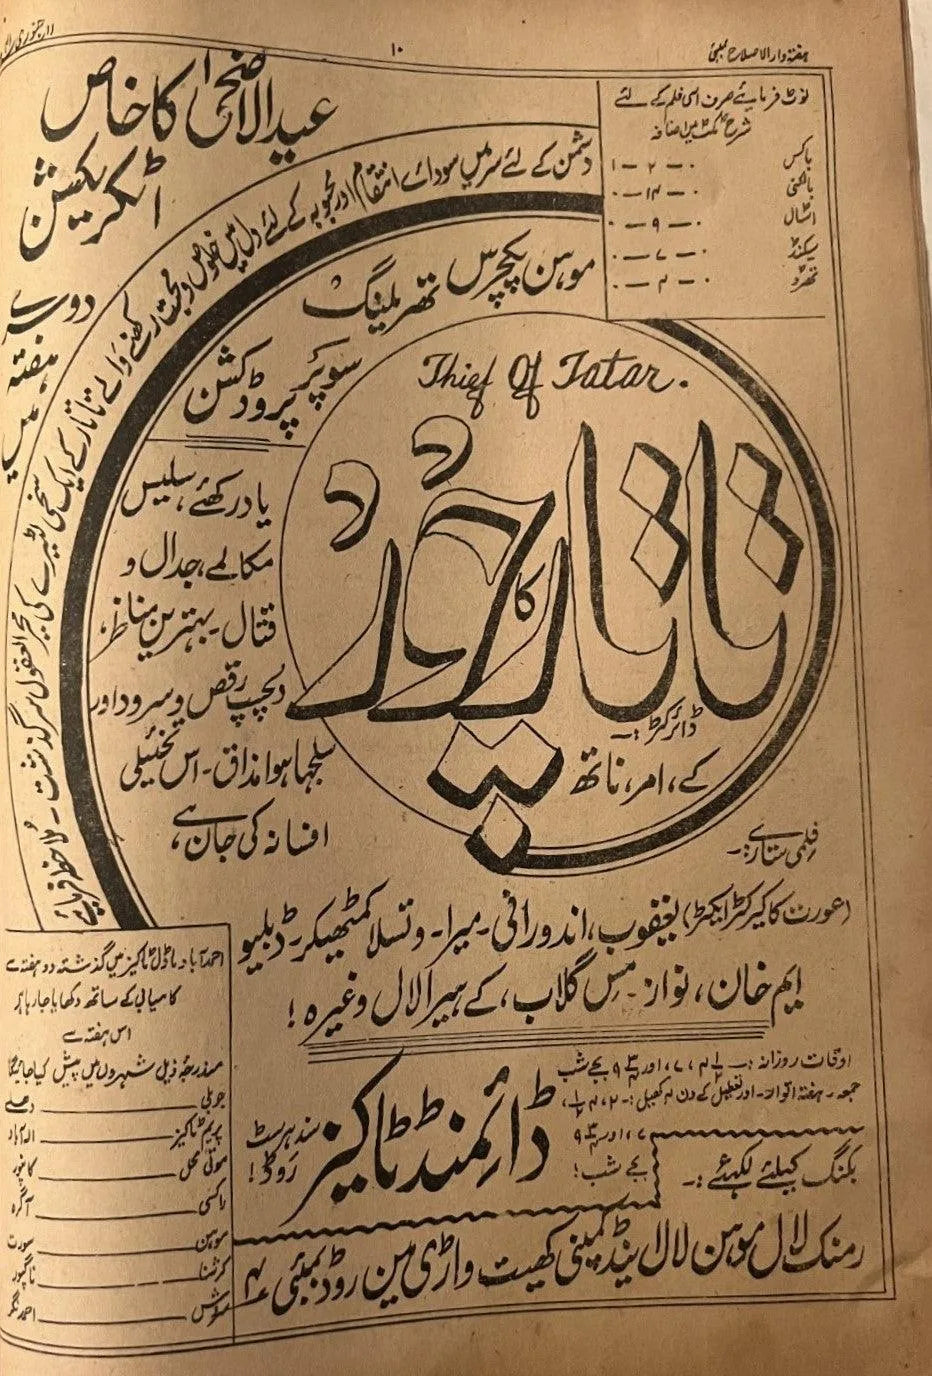 ہفتہ وار الاصلاح بمبئی
۱۰
نوٹ فرمایئے صرف اسی فلم کے لئے
شرح ٹکٹ میں اضافہ
باکس ۰ - ۲ - ۱
بالکنی ۰ - ۱۴ - ۰
اسٹال ۰ - ۹ - ۰
سیکنڈ ۰ - ۷ - ۰
تھرڈ ۰ - ۴ - ۰
عیدالاضحیٰ کا خاص
اٹکریکشن
دوسرے
ہفتہ
میں
دشمن کے لئے سر میں سودائے انتقام اور محبوبہ کے لئے دل میں خلوص و محبت رکھنے والے تاتار کے ایک سخی لٹیرے کی محیر العقول سرگذشت - ملاحظہ فرمایئے
موہن پکچرس تھرلینگ
سوپر پروڈکشن
Thief Of Tatar.
تاتار کا چور
یاد رکھئے، سلیس
مکالمے، جدال و
قتال - بہترین مناظر،
دلچسپ رقص و سرود اور
سلجھا ہوا مذاق - اس تخئیلی
افسانہ کی جان ہے،
ڈائرکٹر:-
کے، امر، ناتھ
فلمی ستارے:-
(عورت کا کیرکٹر ایکٹر) یعقوب، اندورانی - میرا - وتسلا کمٹھیکر - ڈبلیو
ایم خان، نواز - مس گلاب، کے ہیرالال وغیرہ!
احمد آباد ماڈل ٹاکیز میں گذشتہ دو ہفتے سے
کامیابی کے ساتھ دکھایا جا رہا ہے
اس ہفتہ سے
مندرجہ ذیل شہروں میں پیش کیا جائیگا
جوبلی دہلی
پریم ٹاکیز الہ آباد
موتی محل کانپور
راکسی آگرہ
موہن سورت
کرشنا ناگپور
سروش احمد نگر
اوقات روزانہ:- ۴½، ۷، اور ۹¾ بجے شب
جمعہ - ہفتہ اتوار - اور تعطیل کے دن ۴ کھیل:- ۲، ۴½،
۷، اور ۹¾
بجے شب!
ڈائمنڈ ٹاکیز
سندہرسٹ
روڈ!
بکنگ کیلئے لکھئے:-
رمنک لال موہن لال اینڈ کمپنی کھیت واڑی مین روڈ بمبئی ۴